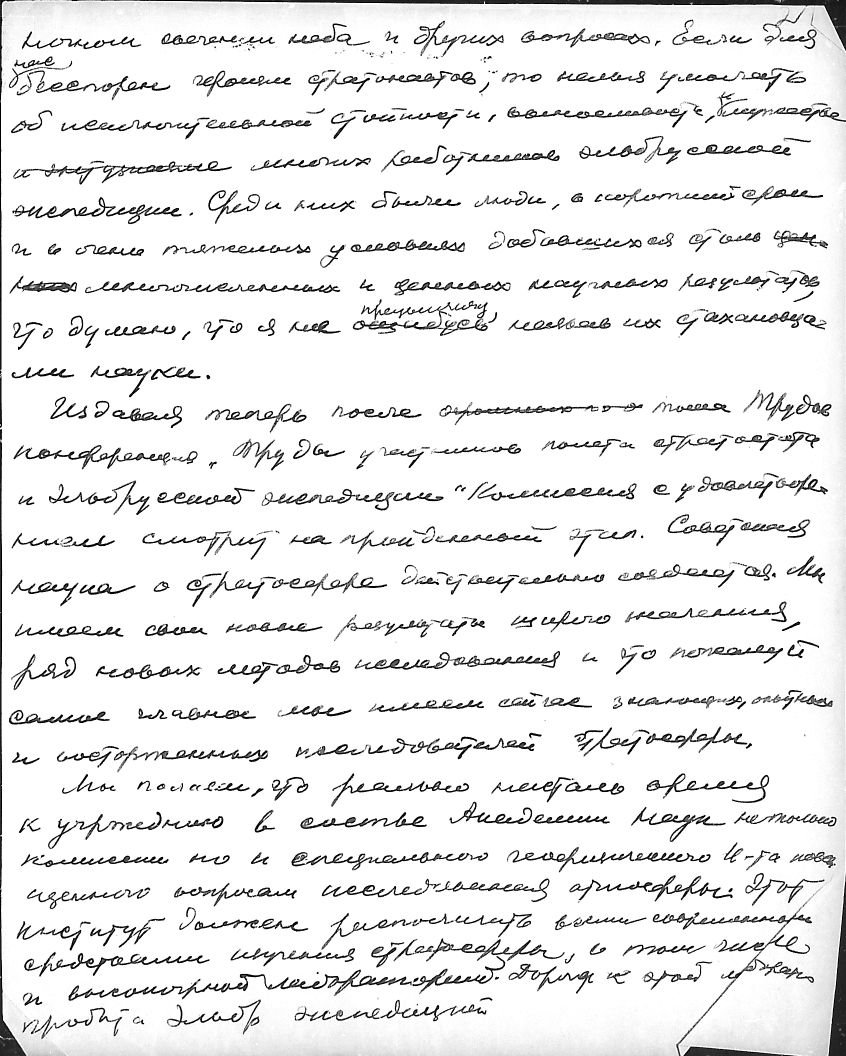 ночном свечении неба и других вопросах. Если для
нас
бесспорен героизм стратонавтов, то нельзя умолчать
об исключительной стойкости, выносливости, и мужестве
и энтузиазме многих работников эльбрусской
экспедиции. Среди них были люди, в короткий срок
и в очень тяжелых условиях добившихся столь цен-
ных многочисленных и ценных научных результатов,
преувеличу,
что думаю, что я не ошибусь назвав их стахановца-
ми науки.
Издавая теперь после тома Трудов
конференции "Труды участников полета стратостата
и Эльбрусской экспедиции" Комиссия с удовлетворе-
нием смотрит на пройденный этап. Советская
наука о стратосфере действительно создается. Мы
имеем свои новые результаты значения,
ряд новых методов исследования и что пожалуй
самое главное мы имеем сейчас знающих, опытных
и восторженных исследователей стратосферы.
Мы полагаем, что реально настало время
к учреждению в составе Академии Наук не только
комиссии но и специального геофизического И-та посвя
щенного вопросам исследования атмосферы. Этот
институт должен располагать всеми современными
средствами изучения стратосферы, в том числе
и высокогорной лабораторией. Дорога к этой
пробита Эльбр экспедицией